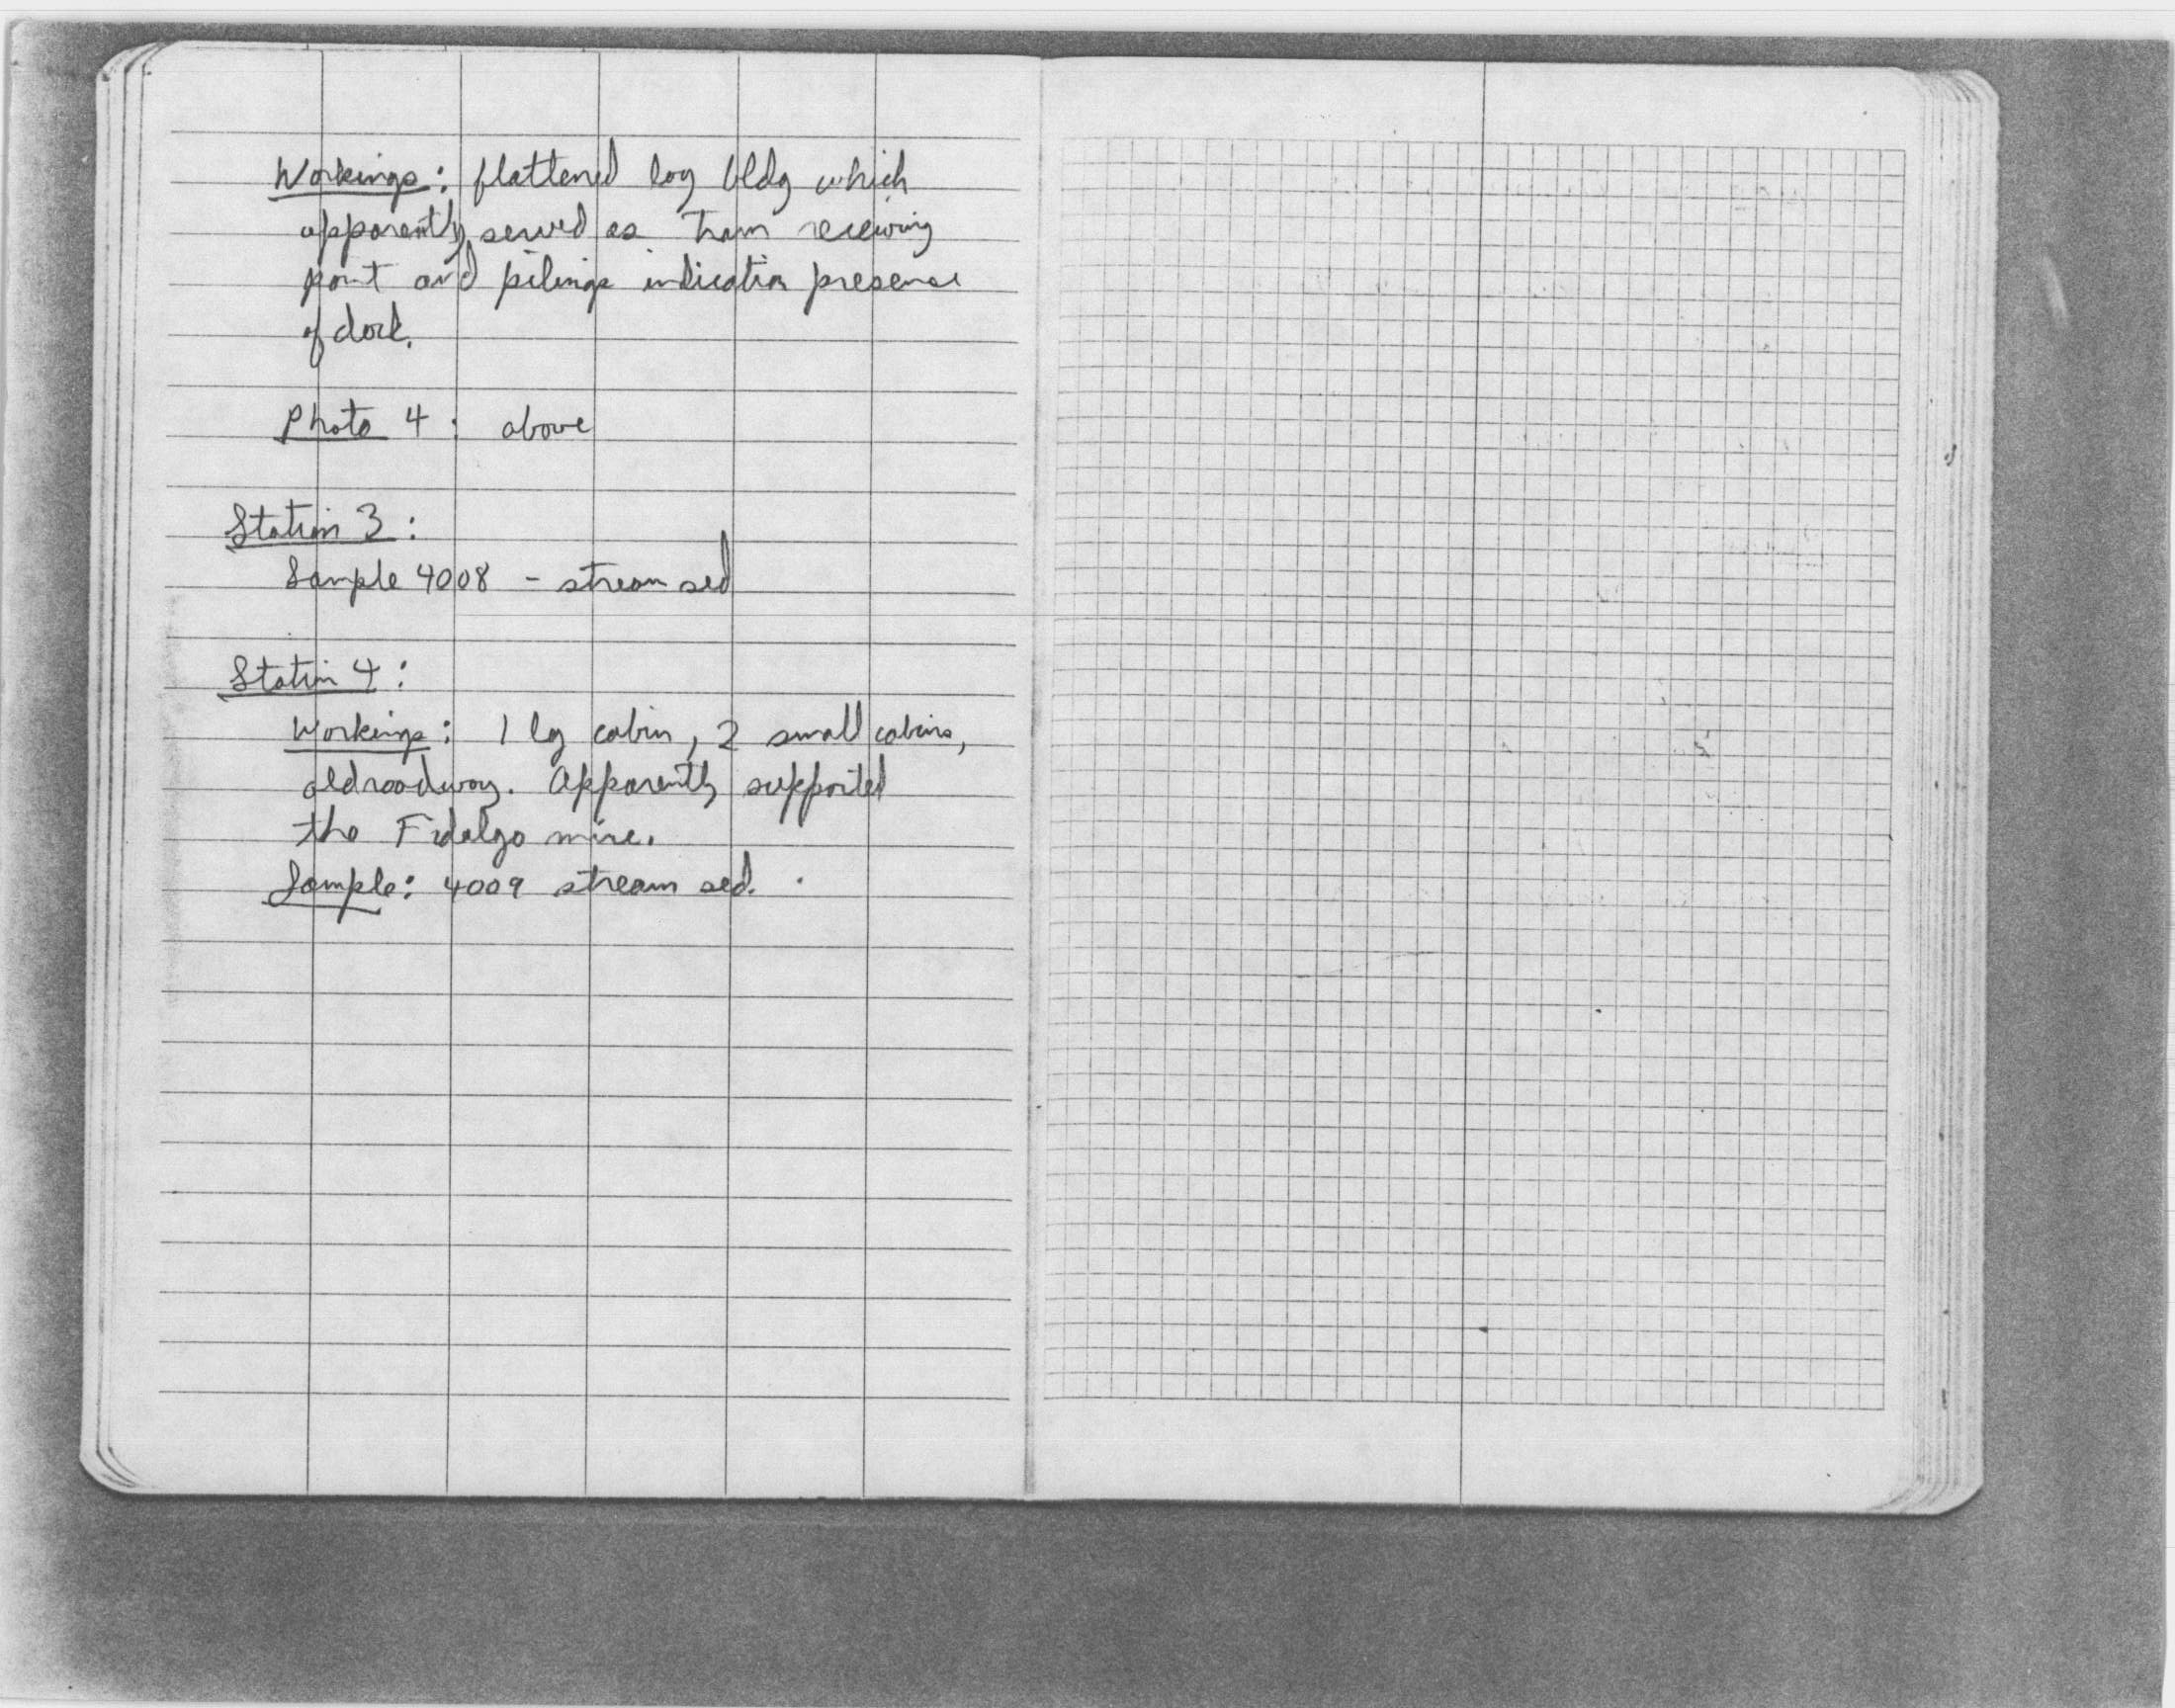 Workings: flattened log bldg which
apparently served as tram receiving
point and pilings indicatin presence
of dock.
Photo 4: above
Station 3:
Sample 4008 - stream sed
Station 4:
Workings: 1 lg cabin, 2 small cabins,
old roadway. Apparently supported
the Fidalgo mine.
Sample: 4009 stream sed.